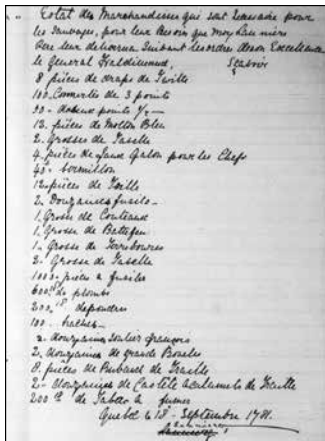 Estat des Marchandises qui sont necessaire pour
les Sauvages, pour leur Besoin que moy Launiere
Pere leur delivrera Suivant les ordres de son Excellence
le general Haldimand, Scavoir
8 pièces de draps de
100 Couvertes de 3 points
50 - points
12 pièces de Molton Bleu
2 Grosses de
4 pièces de faux Galon pour les Chefs
40 - vermillon
12 pièces de Toille
2 Douzaines fusils
1 Grosse de Couteaux
1 Grosse de Battefeu
1 Grosse de Tirebourres
2 Grosse de
1000 pierres à fusils
600 lb de plombs
200 lb de poudres
100 haches
2 douzaines soulier françois
2 douzaines de grande Boucles
8 pièces de Rubans de
2 douzaines de
200 lb de Tabac a fumer
Quebec le 18 - Septembre 1781.
Launiere